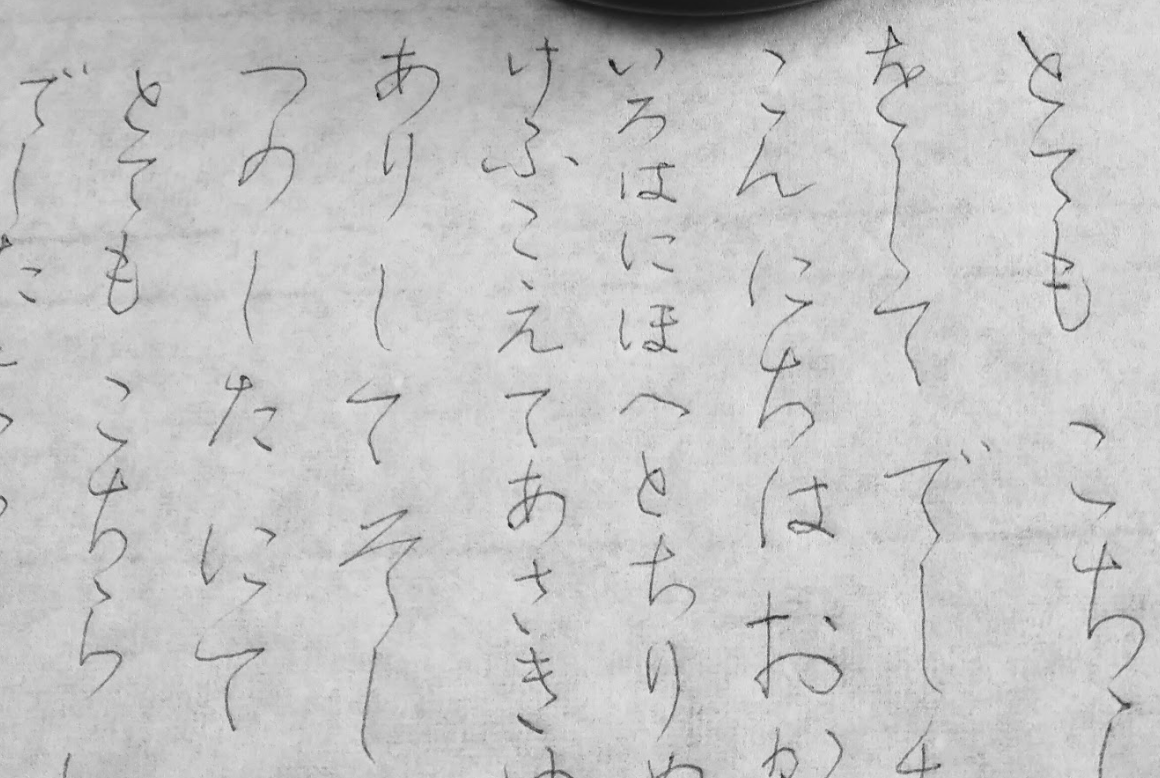 とても こちら
をして でし
こんにちは おか
いろはにほへとちりぬ
けふこえてあさきゆ
ありして そし
つのしたにて
とても こちら
でした